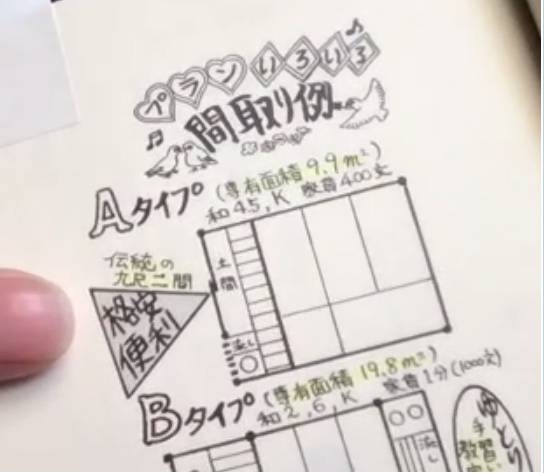 プランいろいろ
間取り例
Aタイプ
(専有面積 9.9m²)
和4.5, K 家賃400文
伝統の
九尺二間
格安
便利
土間
流し
Bタイプ
(専有面積 19.8m²)
和2, 6, K 家賃1分(1000文)
流し
ゆとり
手
教習